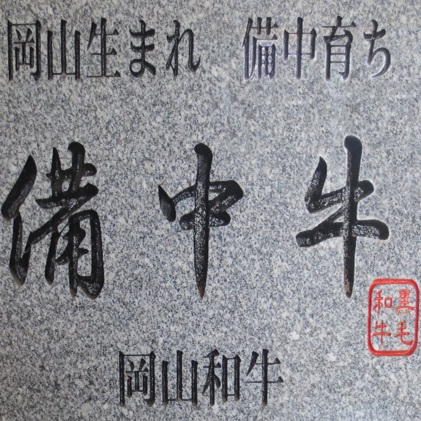 岡山生まれ 備中育ち
備中牛
黒毛
和牛
岡山和牛